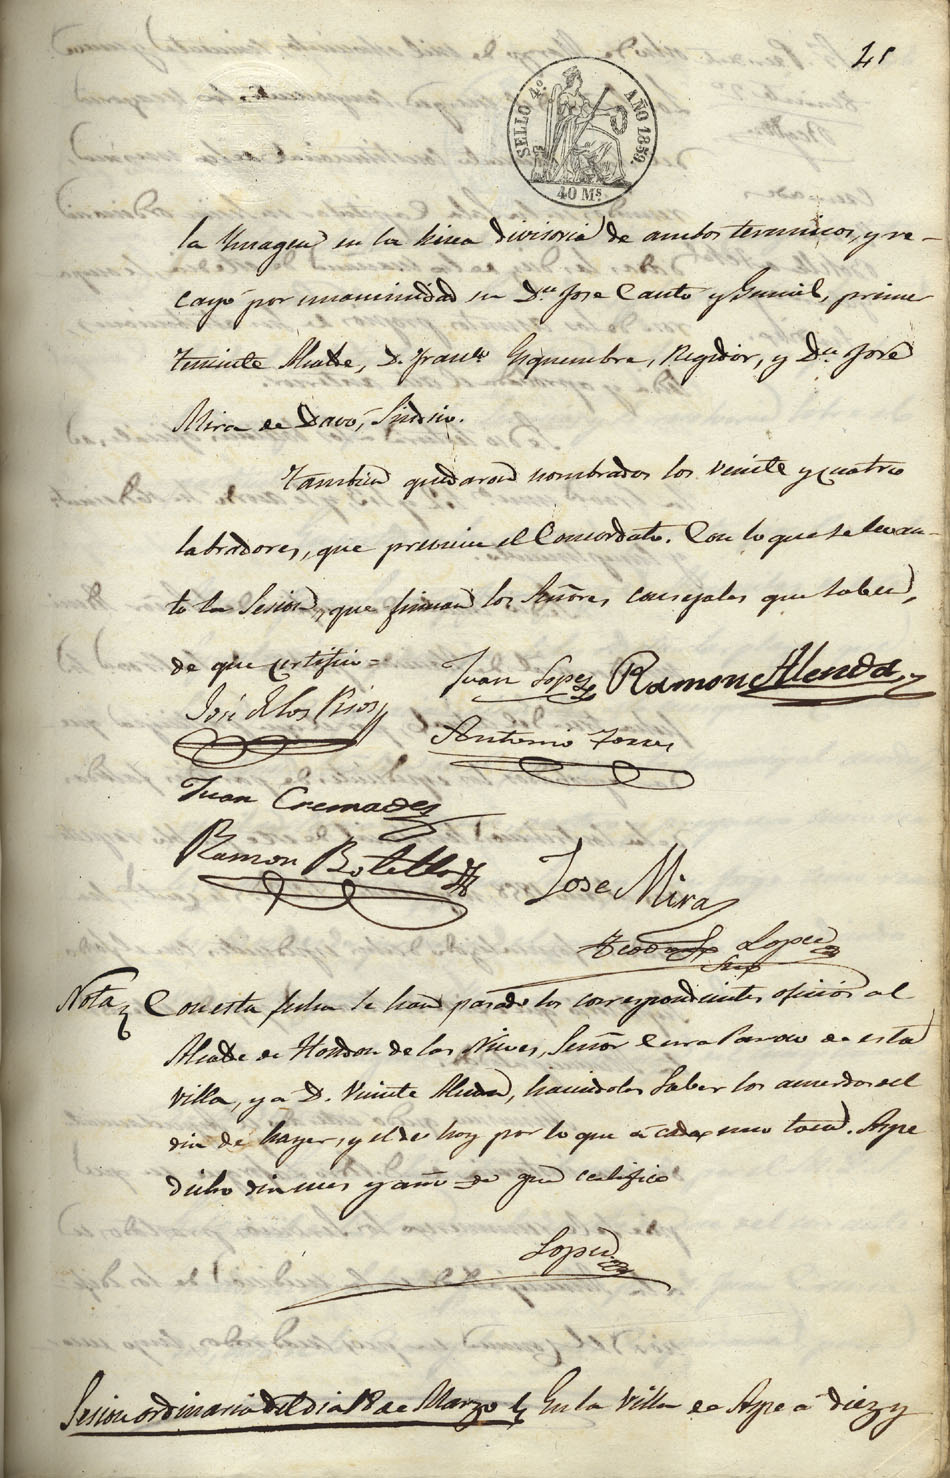 21
SELLO 4º AÑO 1859.
40 Ms.
la Ymagen en la linea divisoria de ambos terminos, y re-
cayó por unanimidad en Dn. Jose Canto y Gumiel, primer
teniente Alcalde, D. Franco. Esquembre, Regidor, y Dn. José
Mira de Davó, Sindico.
Tambien quedaron nombrados los veinte y cuatro
labradores, que previene el Concordato. Con lo que se levan-
to la Sesion, que firman los Señores consejales que saben,
de que certifico =
Juan Lopez Ramon Alenda
José de los Rios
Antonio Torres
Juan Cremades
Ramon Botella
Jose Mira
Lopez
Srio
Nota Con esta fecha se han pasado los correspondientes oficios al
Alcalde de Hondon de las Nieves, Señor Cura Parroco de esta
villa, y a D. Vicente Alenda, haciendoles saber los acuerdos del
dia de hayer, y el de hoy por lo que á cada uno toca. Aspe
dicho dia mes y año de que certifico
Lopez
Sesion ordinaria del dia 18 de Marzo En la Villa de Aspe á diez y